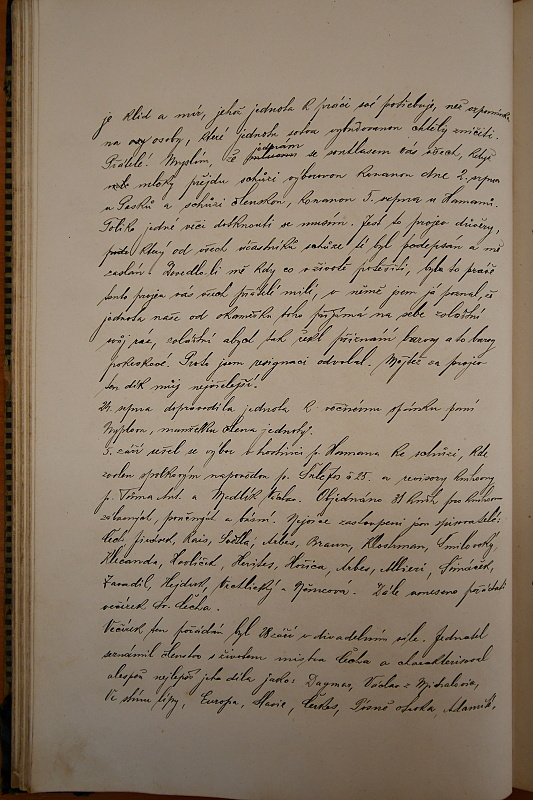 je klid a mír, jehož jednota k práci své potřebuje, než vzpomínka
na osoby, které jednotu sotva vybudovanou chtěly zničiti.
Přátelé! Myslím, že jednám se souhlasem vás všech, když
mlčky přejdu schůzi výborovou konanou dne 2. srpna
u Pasků a schůzi členskou, konanou 5. srpna u Hamanů.
Toliko jedné věci dotknouti se musím. Jest to projev důvěry,
který od všech účastníků schůze té byl podepsán a mě
zaslán. Dovedlo-li mě kdy co v životě potěšiti, byl to právě
tento projev vás všech přátelé milí, v němž jsem já poznal, že
jednota naše od okamžiku toho přijímá na sebe zvláštní
svůj ráz, zvláštní abych tak řekl přiznání barvy a to barvy
pokrokové. Proto jsem resignaci odvolal. Mějtež za projev
ten dík můj nejvřelejší.
24. srpna doprovodila jednota k věčnému spánku paní
manželku člena jednoty.
5. září sešel se výbor v hostinci p. Hamana ke schůzi, kde
zvolen spolkovým nápovědou p. a revisory knihovny
p. Tůma Ant. a Medlík Václav. Objednáno 31 knih pro knihovnu
zábavných, poučných a básní. Nejvíce zastoupeni jsou spisovatelé:
Čech, Jirásek, Rais, Světlá, Arbes, Braun, Klostermann, Šmilovský,
Klecanda, Havlíček, Herites, Hořica, Arbes, Albieri, Šimáček,
Zavadil, Hejduk, Vrchlický a Němcová. Dále usneseno pořádati
večírek Sv. Čecha.
Večírek ten pořádán byl 28 září v divadelním sále. Jednatel
seznámil členstvo s životem mistra Čecha a charakterisoval
alespoň nejlepší jeho díla jako: Dagmar, Václav z Michalovic,
Ve stínu lípy, Evropa, Slavie, Čerkes, Písně otroka, Adamité,